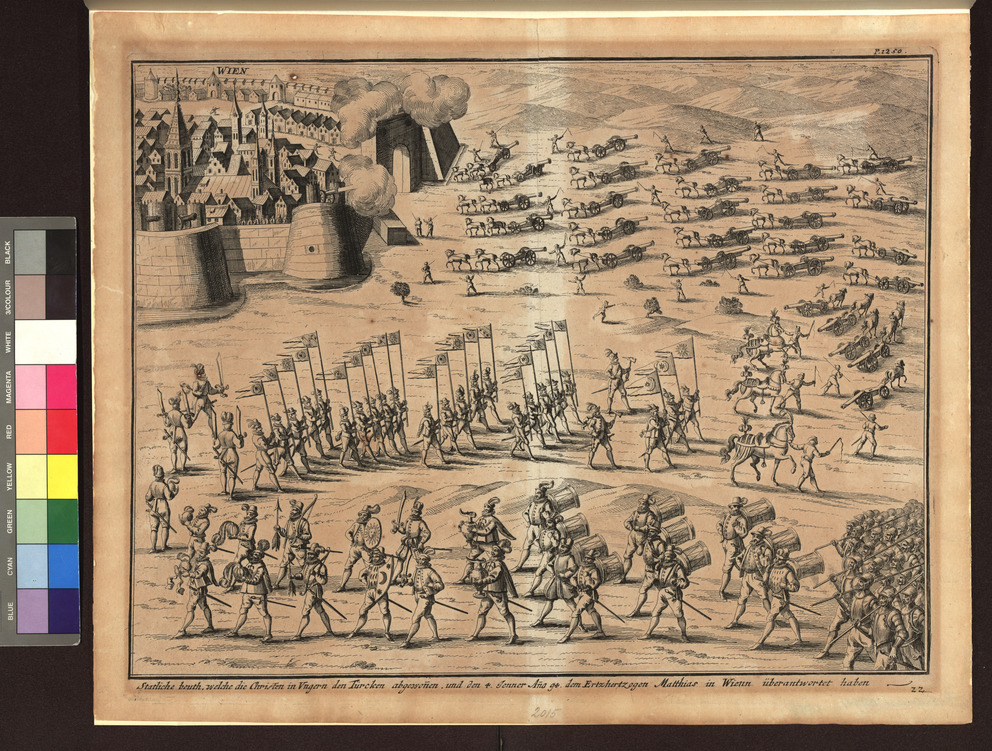 P. 1250.
WIEN
Statliche beuth, welche die Christen in Vngern den Türcken abgewoñen, und den 4. Jenner Año 94 dem Ertzhertzogen Matthias in Wienn überantwortet haben
22
2015
BLACK
3/COLOUR
WHITE
MAGENTA
RED
YELLOW
GREEN
CYAN
BLUE